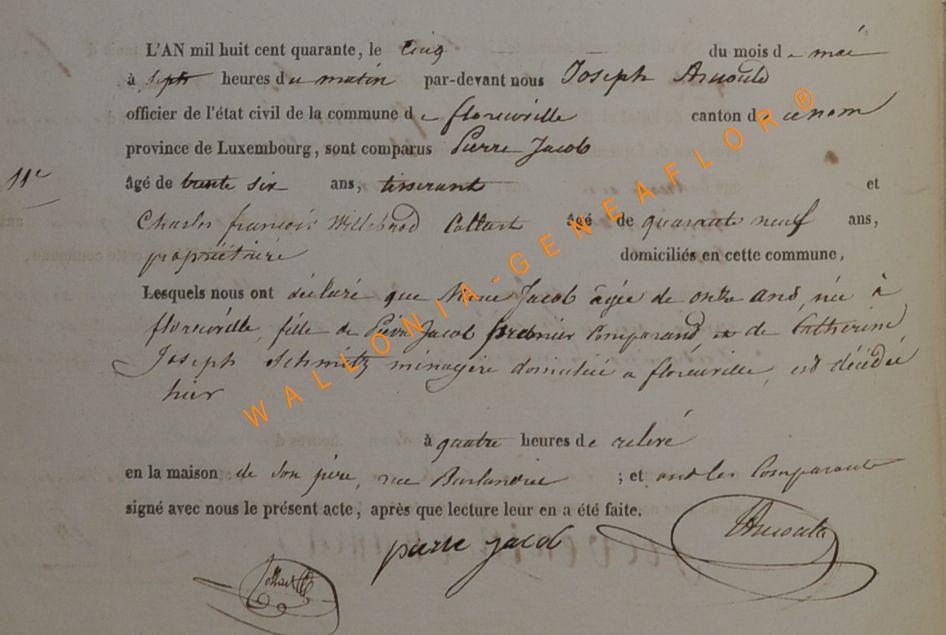 L'AN mil huit cent quarante, le cinq du mois de mai
à sept heures du matin par-devant nous Joseph Arnould
officier de l'état civil de la commune de florenville canton de ce nom
province de Luxembourg, sont comparus Pierre Jacob
11e
âgé de trente six ans, tisserant et
Charles françois Willebrod Collart âgé de quarante neuf ans,
propriétaire domiciliés en cette commune,
Lesquels nous ont déclaré que Marie Jacob âgée de onze ans, née à
florenville, fille de Pierre Jacob premier Comparand et de Catherine
Joseph Schmitz ménagère domiciliée à florenville, est décédée
hier
à quatre heures de relevé
en la maison de son père, rue ; et ont les Comparants
signé avec nous le présent acte, après que lecture leur en a été faite.
pierre jacob Arnould
Collart
WALLONIA-GENEAFLOR®